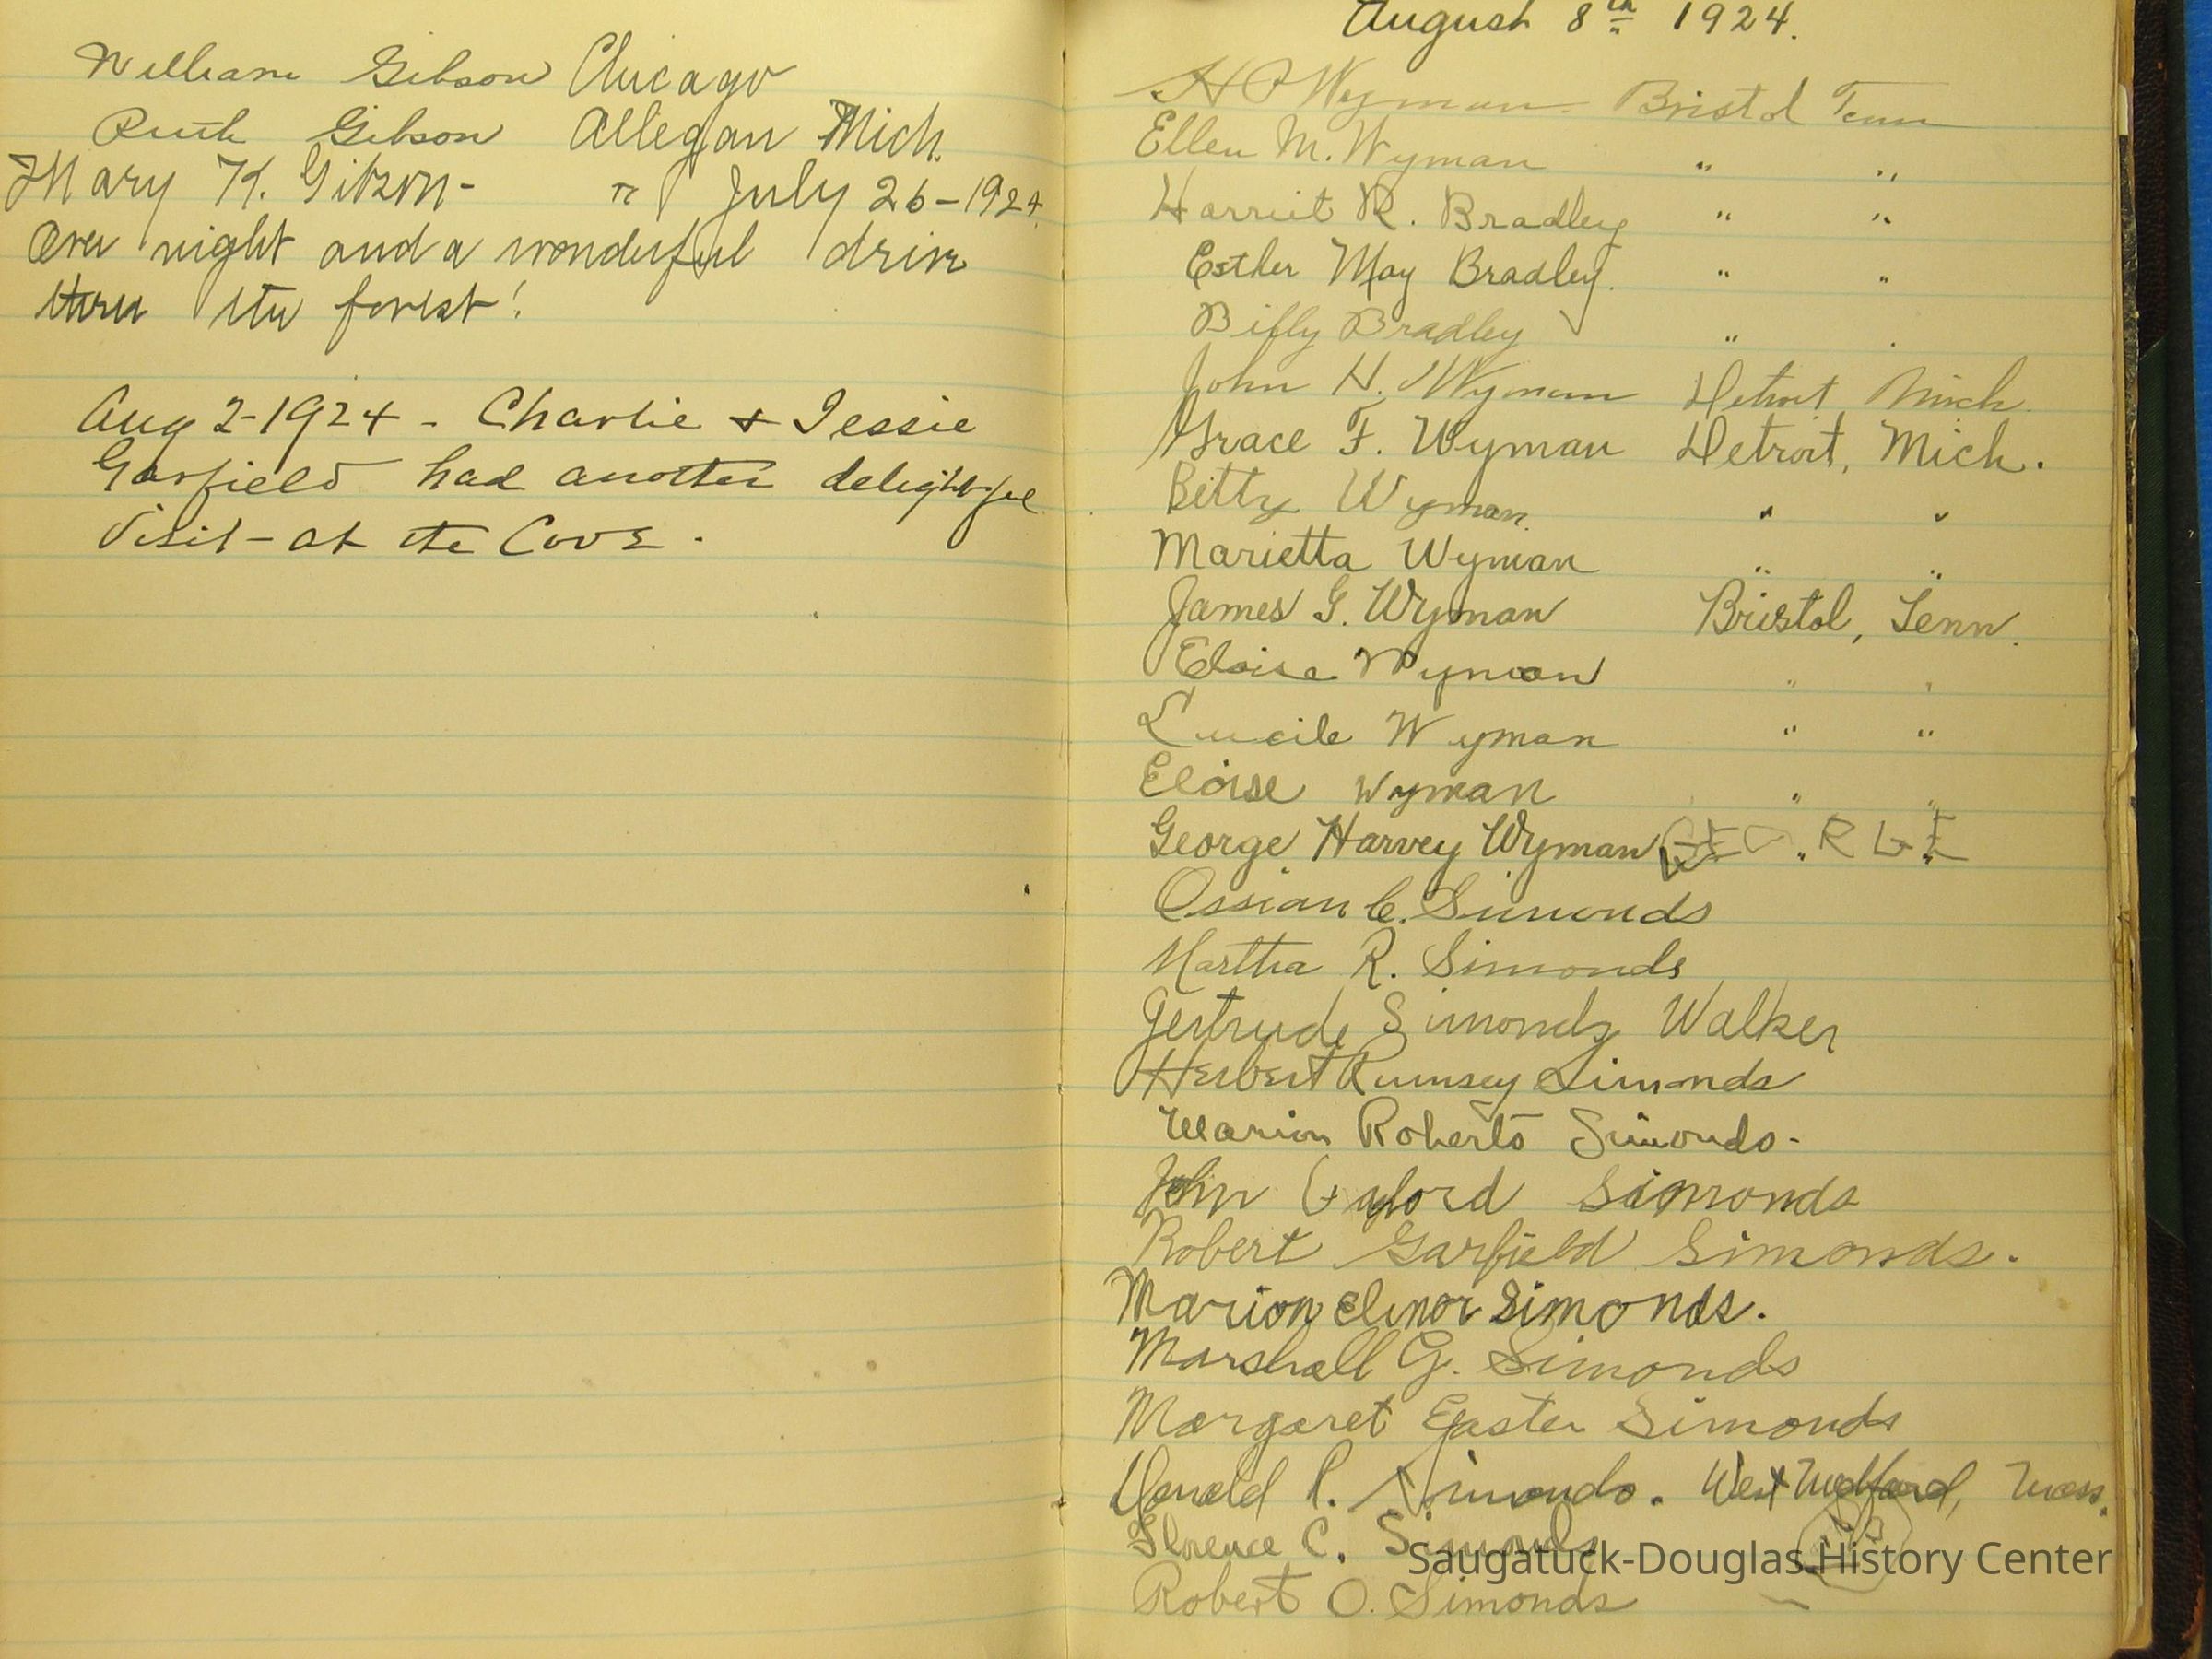 William Gibson Chicago
Ruth Gibson Allegan Mich.
Mary K. " July 26-1924
Over night and a wonderful drive
thru the forest!
Aug 2-1924 - Charlie + Jessie
Garfield had another delightful
visit - at the Cove.
August 8th 1924.
H P Wyman Bristol Tenn
Ellen M. Wyman " "
Harriet R. Bradley " "
Esther May Bradley. " "
Billy Bradley "
John H. Wyman Detroit Mich.
Grace F. Wyman Detroit, Mich.
Betty Wyman. " "
Marietta Wyman " "
James G. Wyman Bristol, Tenn.
Eloise Wyman " "
Lucile Wyman " "
Eloise Wyman " "
George Harvey Wyman
Ossian C. Simonds
Martha R. Simonds
Gertrude Simonds Walker
Herbert Rumsey Simonds
Marion Roberts Simonds-
John Gaylord Simonds
Robert Garfield Simonds.
Marion Elinor Simonds.
Marshall G. Simonds
Margaret Easter Simonds
Donald P. Simonds. West Medford, Mass.
Florence C. Simonds
Saugatuck-Douglas History Center
Robert O. Simonds